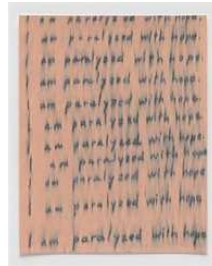 I am paralyzed with hope
am paralyzed with hope.
am paralyzed with hope.
am paralyzed with hope.
am paralyzed with hope.
am paralyzed with hope.
am paralyzed with hope.
am paralyzed with hope
am paralyzed with hope
am paralyzed with hope
I am paralyzed with hope